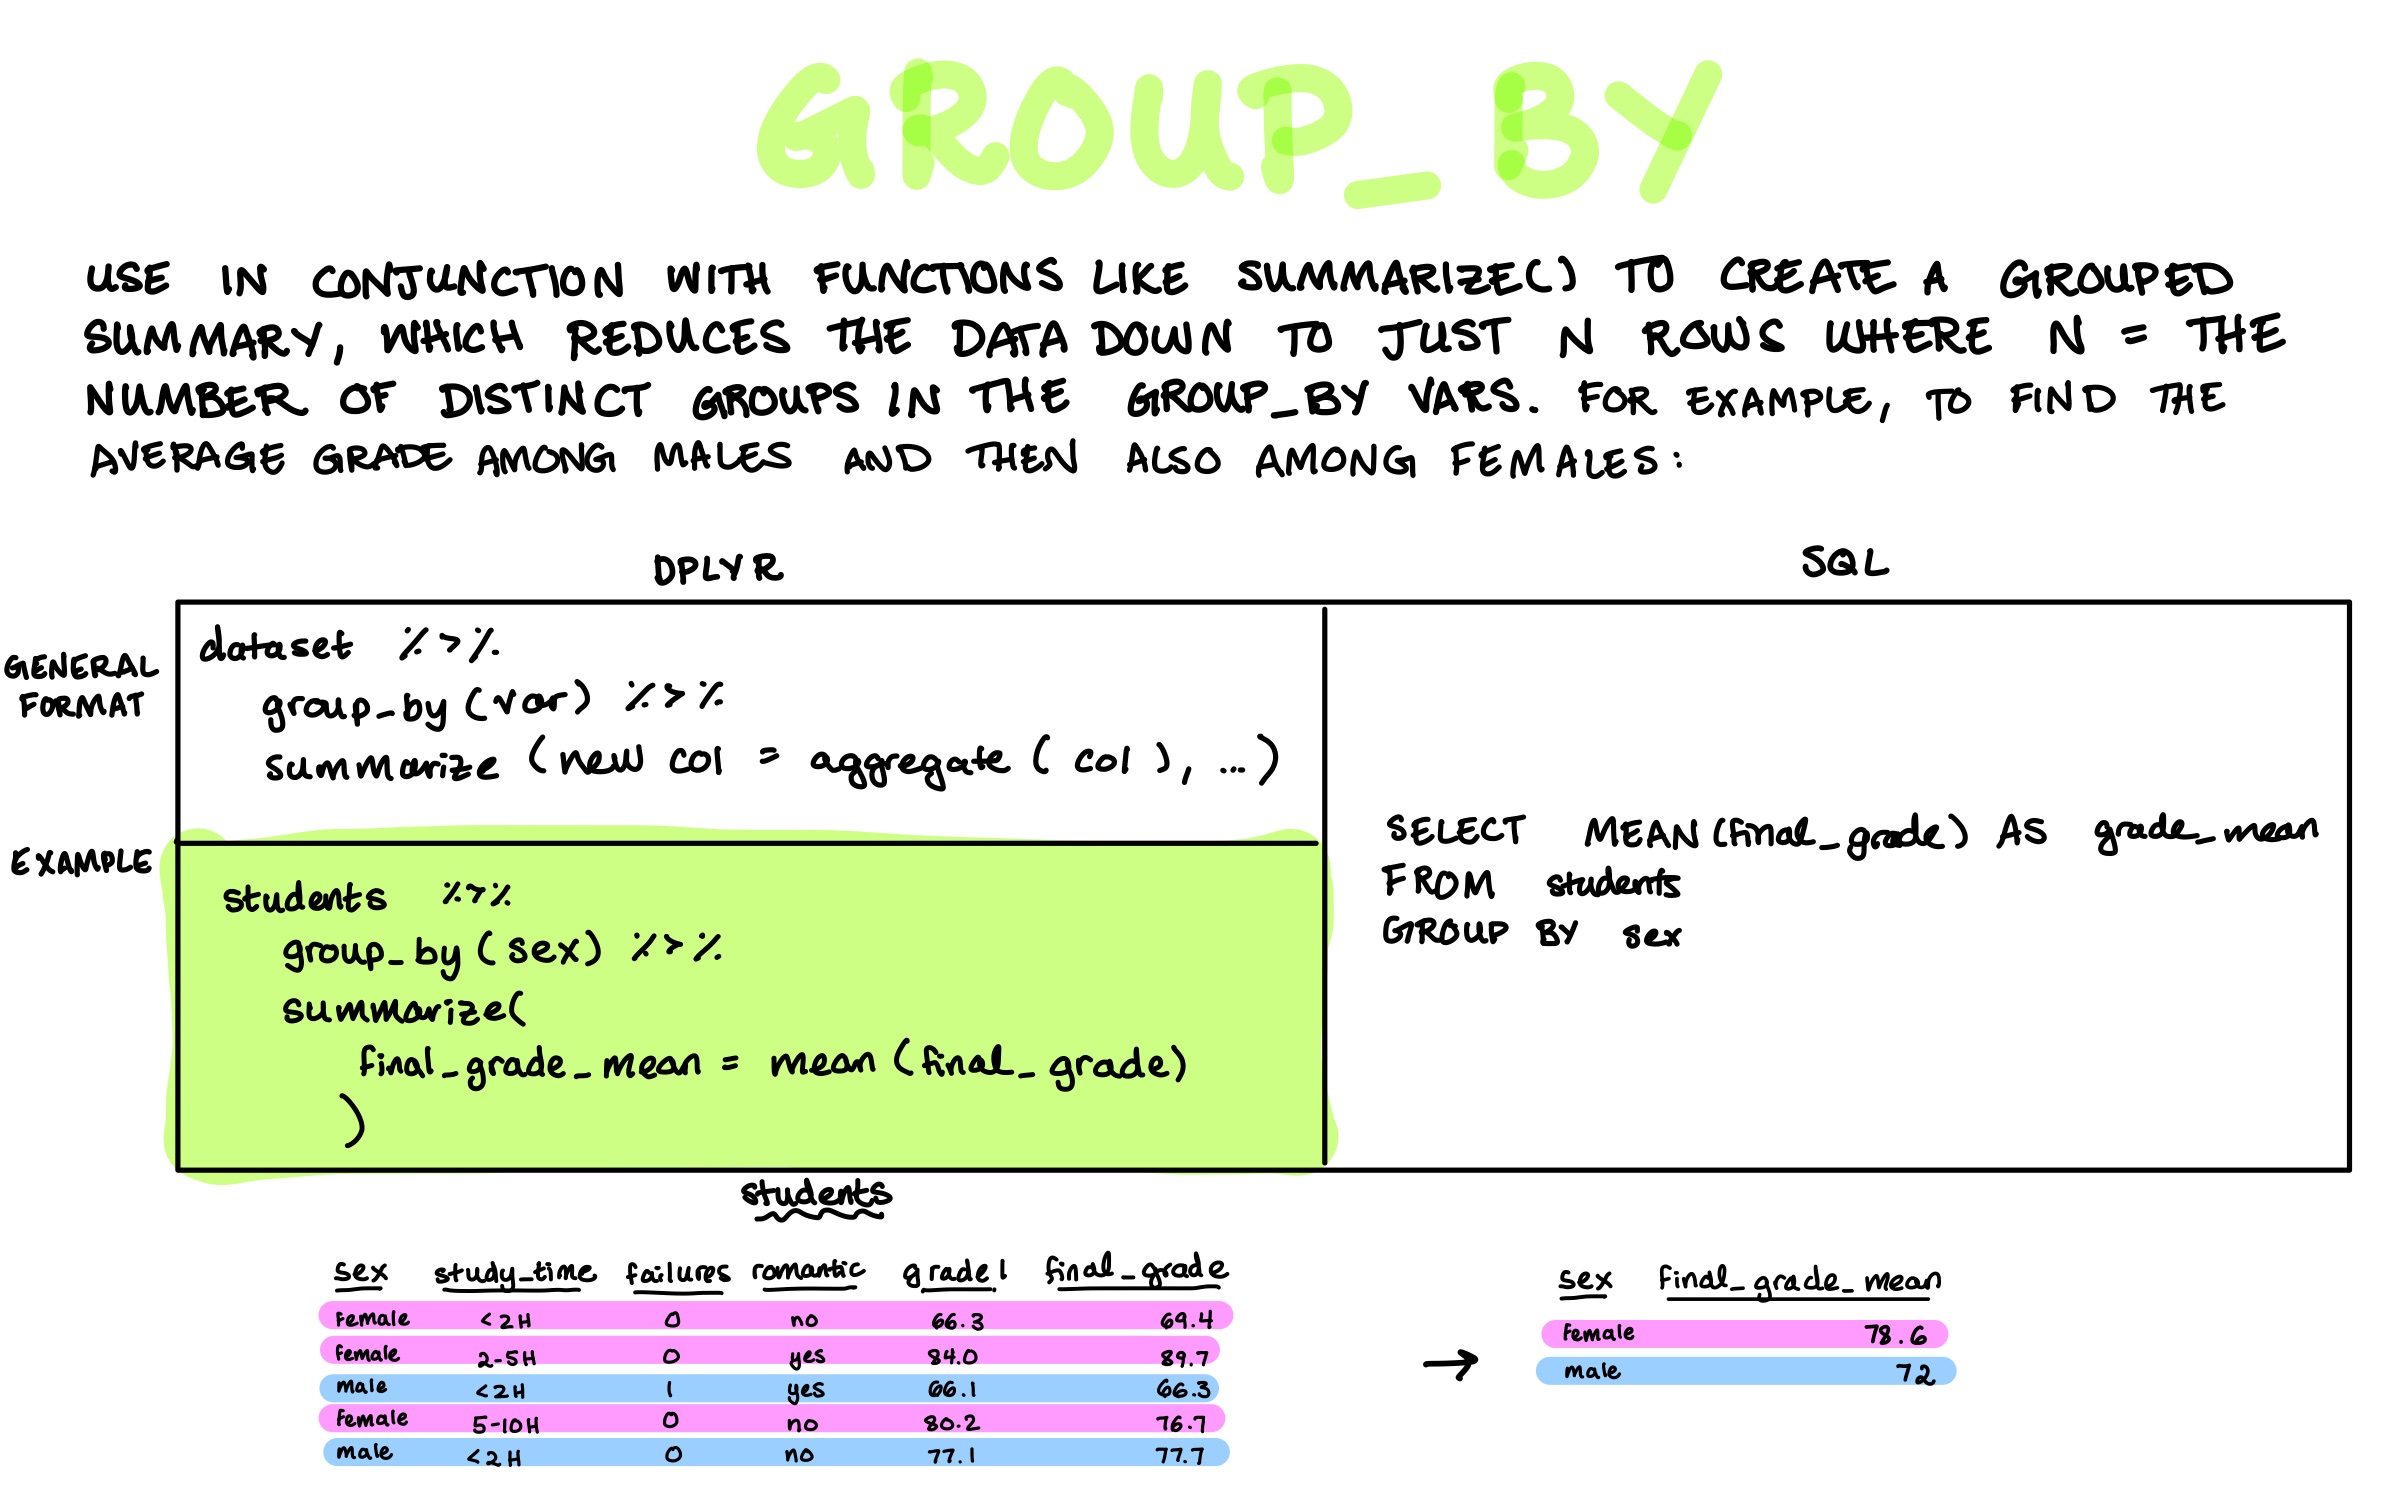 GROUP_BY
USE IN CONJUNCTION WITH FUNCTIONS LIKE SUMMARIZE() TO CREATE A GROUPED
SUMMARY, WHICH REDUCES THE DATA DOWN TO JUST N ROWS WHERE N = THE
NUMBER OF DISTINCT GROUPS IN THE GROUP_BY VARS. FOR EXAMPLE, TO FIND THE
AVERAGE GRADE AMONG MALES AND THEN ALSO AMONG FEMALES:
DPLYR
SQL
GENERAL
FORMAT
dataset %>%
group_by (var) %>%
summarize (new col = aggregate ( col ), ...)
EXAMPLE
students %>%
group_by (sex) %>%
summarize(
final_grade_mean = mean (final_grade)
)
SELECT MEAN (final_grade) AS grade_mean
FROM students
GROUP BY sex
students
sex study_time failures romantic grade1 final_grade
female <2H 0 no 66.3 69.4
female 2-5H 0 yes 84.0 89.7
male <2H 1 yes 66.1 66.3
female 5-10H 0 no 80.2 76.7
male <2H 0 no 77.1 77.7
→
sex final_grade_mean
female 78.6
male 72